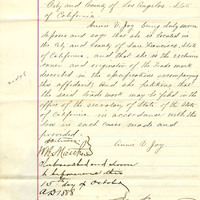 City and County of Los Angeles, State
of California.
Annie V. Joy being duly sworn
deposes and says that she is located in
the City and County of San Francisco, State
of California, and that she is the exclusive
owner and originator of the trade mark
described in the specification accompanying
this affidavit and she petitions that
the said trade mark may be filed in the
office of the secretary of state of the state
of California in accordance with the
law in such cases, made and
provided.
Annie V. Joy
Subscribed and sworn
to before me this
15th day of October
A.D. 1888